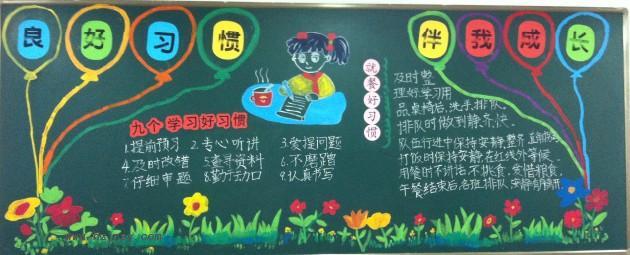 良好习惯 伴我成长
九个学习好习惯
1.提前预习 2.专心听讲 3.爱提问题
4.及时改错 5.查寻资料 6.不磨蹭
7.仔细审题 8.勤于动口 9.认真书写
就餐好习惯
及时整
理好学习用
品,桌椅后,洗手,排队。
排队时做到静齐法。
队伍行进中保持安静,整齐
打饭时保持安静,在红线外等候。
用餐时不讲话,不挑食,爱惜粮食。
午餐结束后各班排队安静